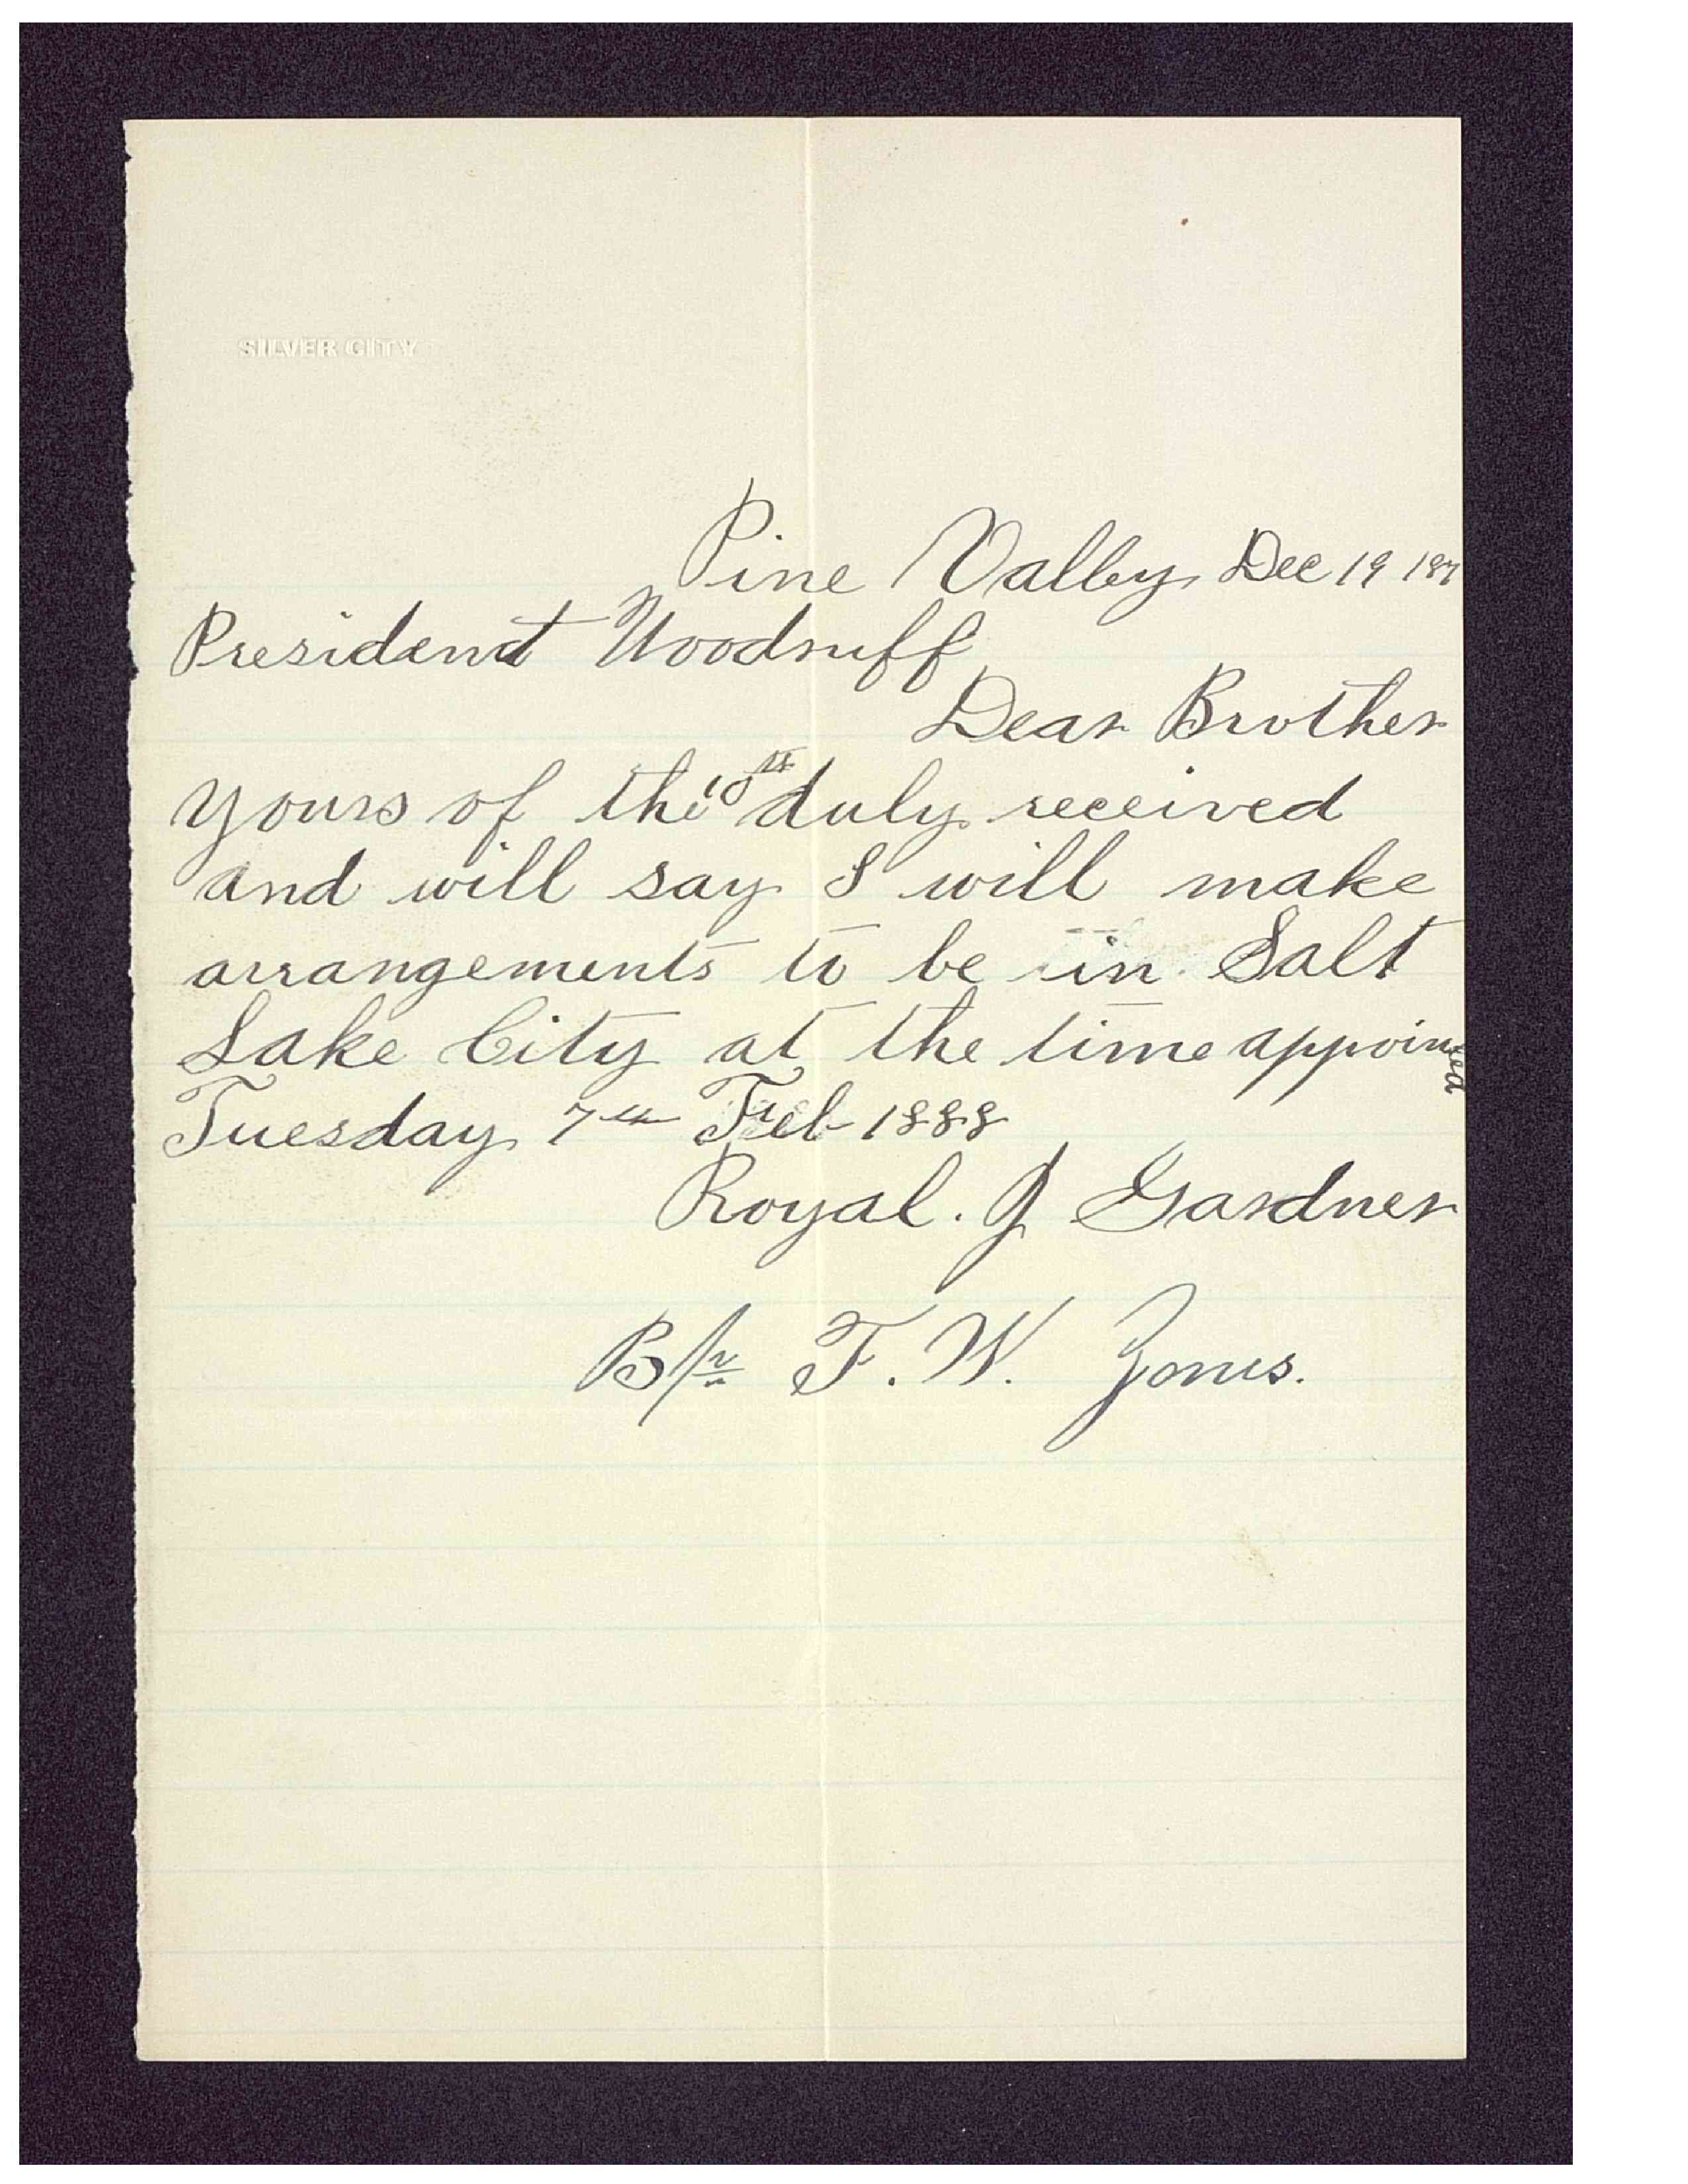 SILVER CITY
Pine Valley Dec 19 1887
President Woodruff
Dear Brother
yours of the 10th duly received
and will say I will make
arrangements to be in Salt
Lake City at the time appointed
Tuesday 7th Feb 1888
Royal. J Gardner
Bp F. W. Jones.